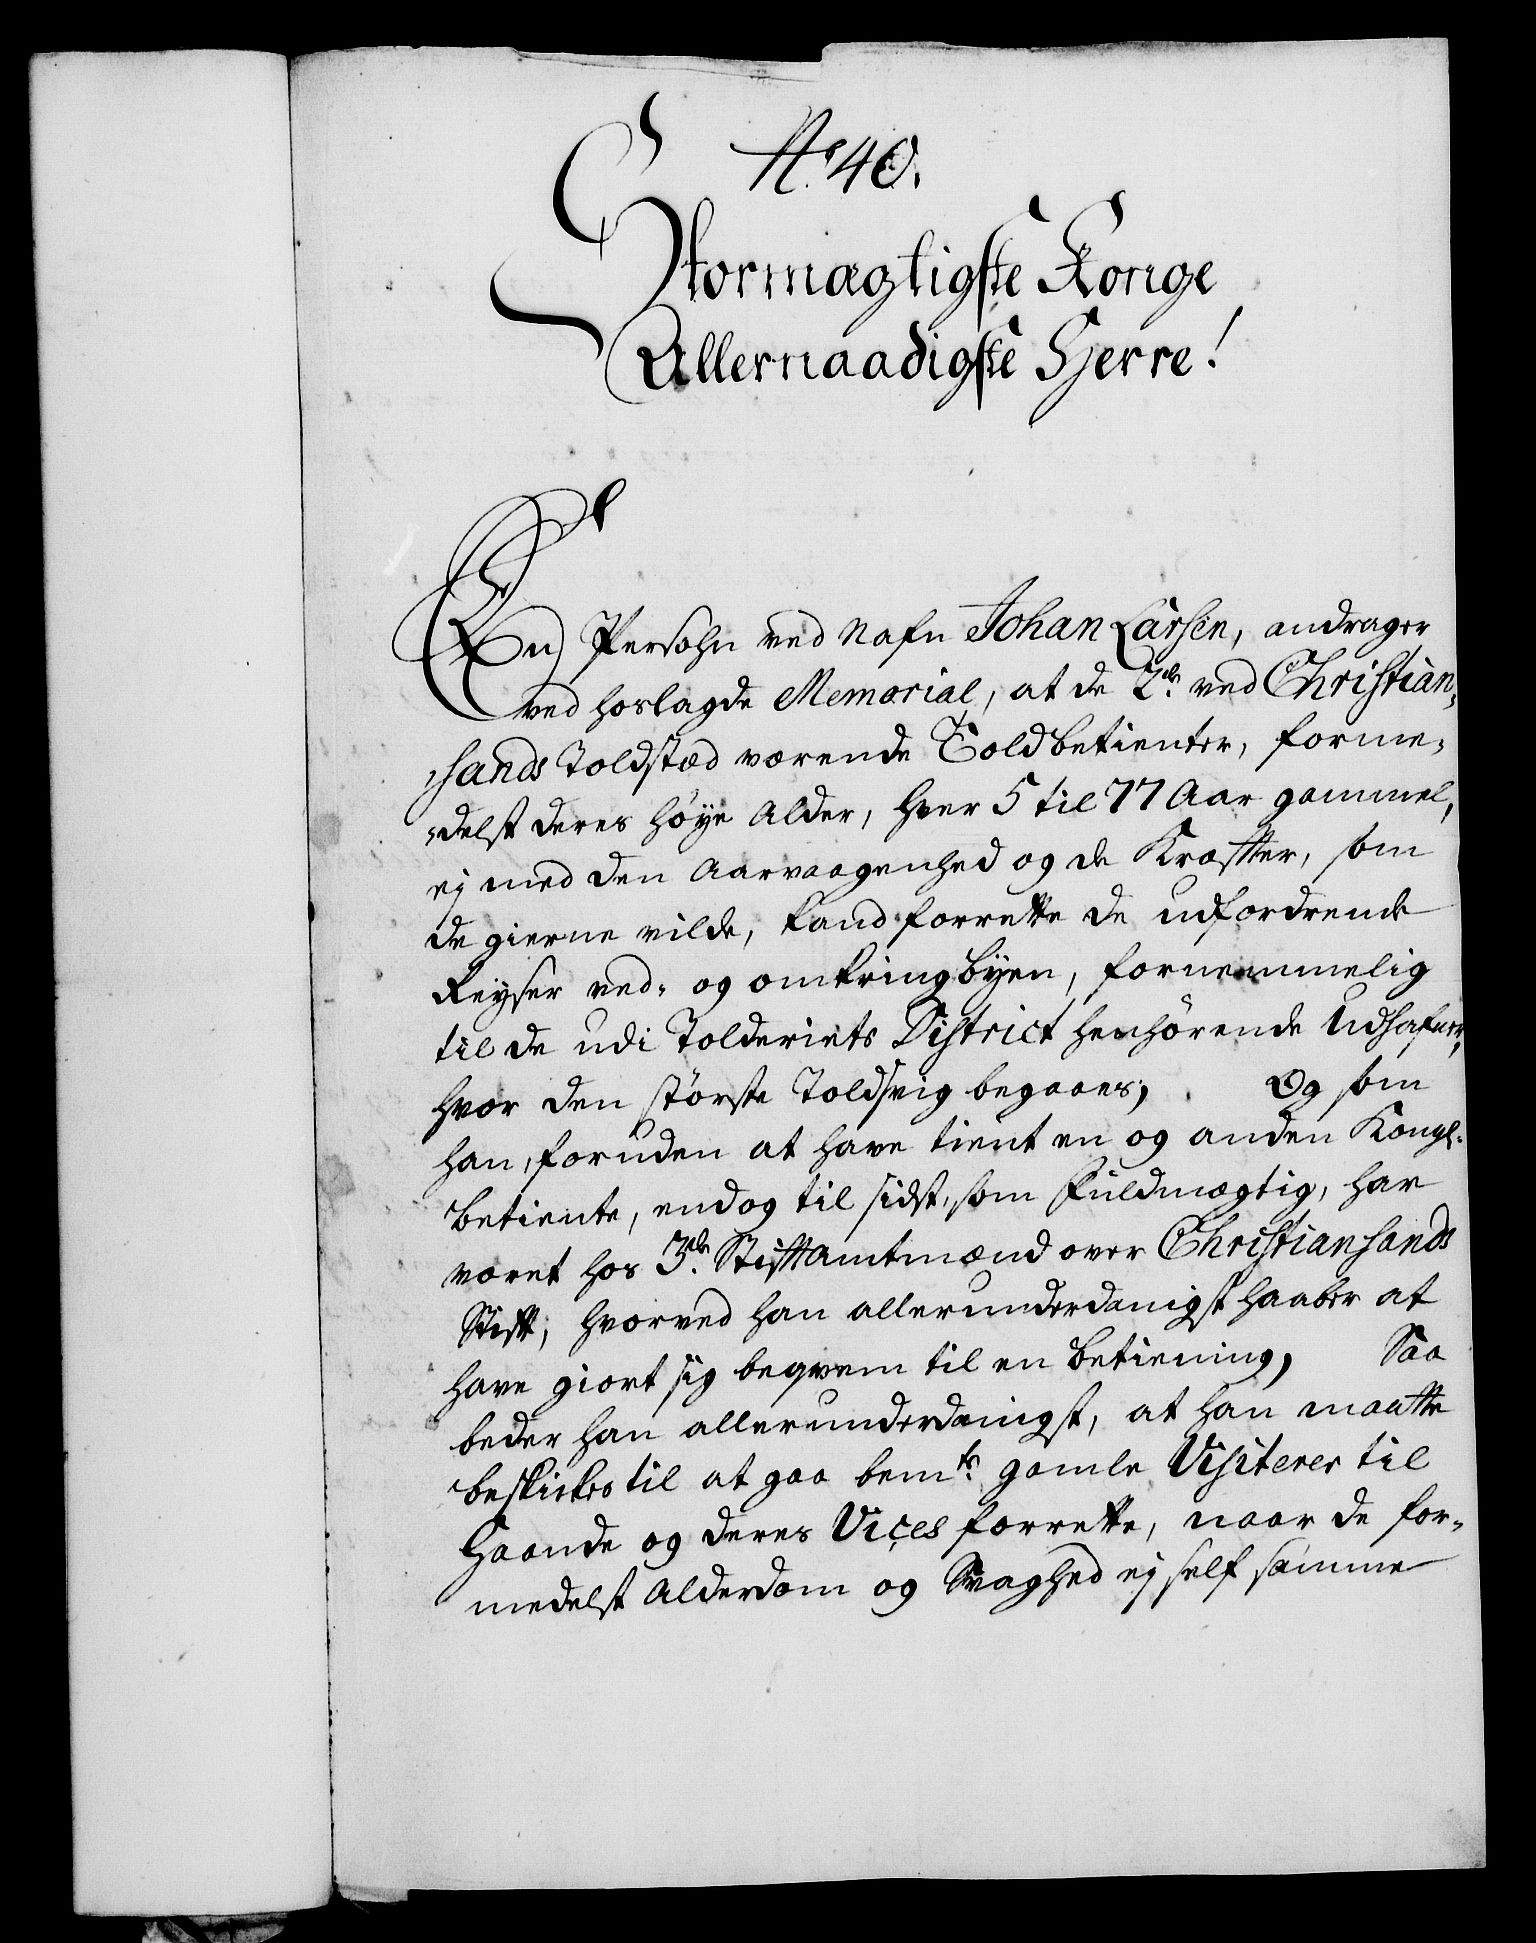 No 40.
Stormægtigste Konge
Allernaadigste Herre!
En Persohn ved Nafn Johan Larsen, andrager
ved hoslagde Memorial, at de 2de ved Christian-
sands Toldsted værende Toldbetienter, forme-
delst deres høye Alder, hver 5 til 77 Aar gammel,
ej med den Aarvaagenhed og de Kræffter, som
de gierne vilde, kand forrette de udfordrende
Reyser ved- og omkring byen, fornemmelig
til de udi Tolderiets District henhørende Udhafner,
hvor den største Toldsvig begaaes; Og som
han, foruden at have tient en og anden Kongl.
betiente, endog til sidst, som Fuldmægtig, har
været hos 3de Stiftamtmænd over Christiansands
Stift, hvorved han allerunderdanigst haaber at
have giort sig beqvem til en betiening, Saa
beder han allerunderdanigst, at han maatte
beskickes til at gaa bemte gamle Visiterer til
Haande og deres Vices forrette, naar de for-
medelst Alderdom og Svaghed ej self samme